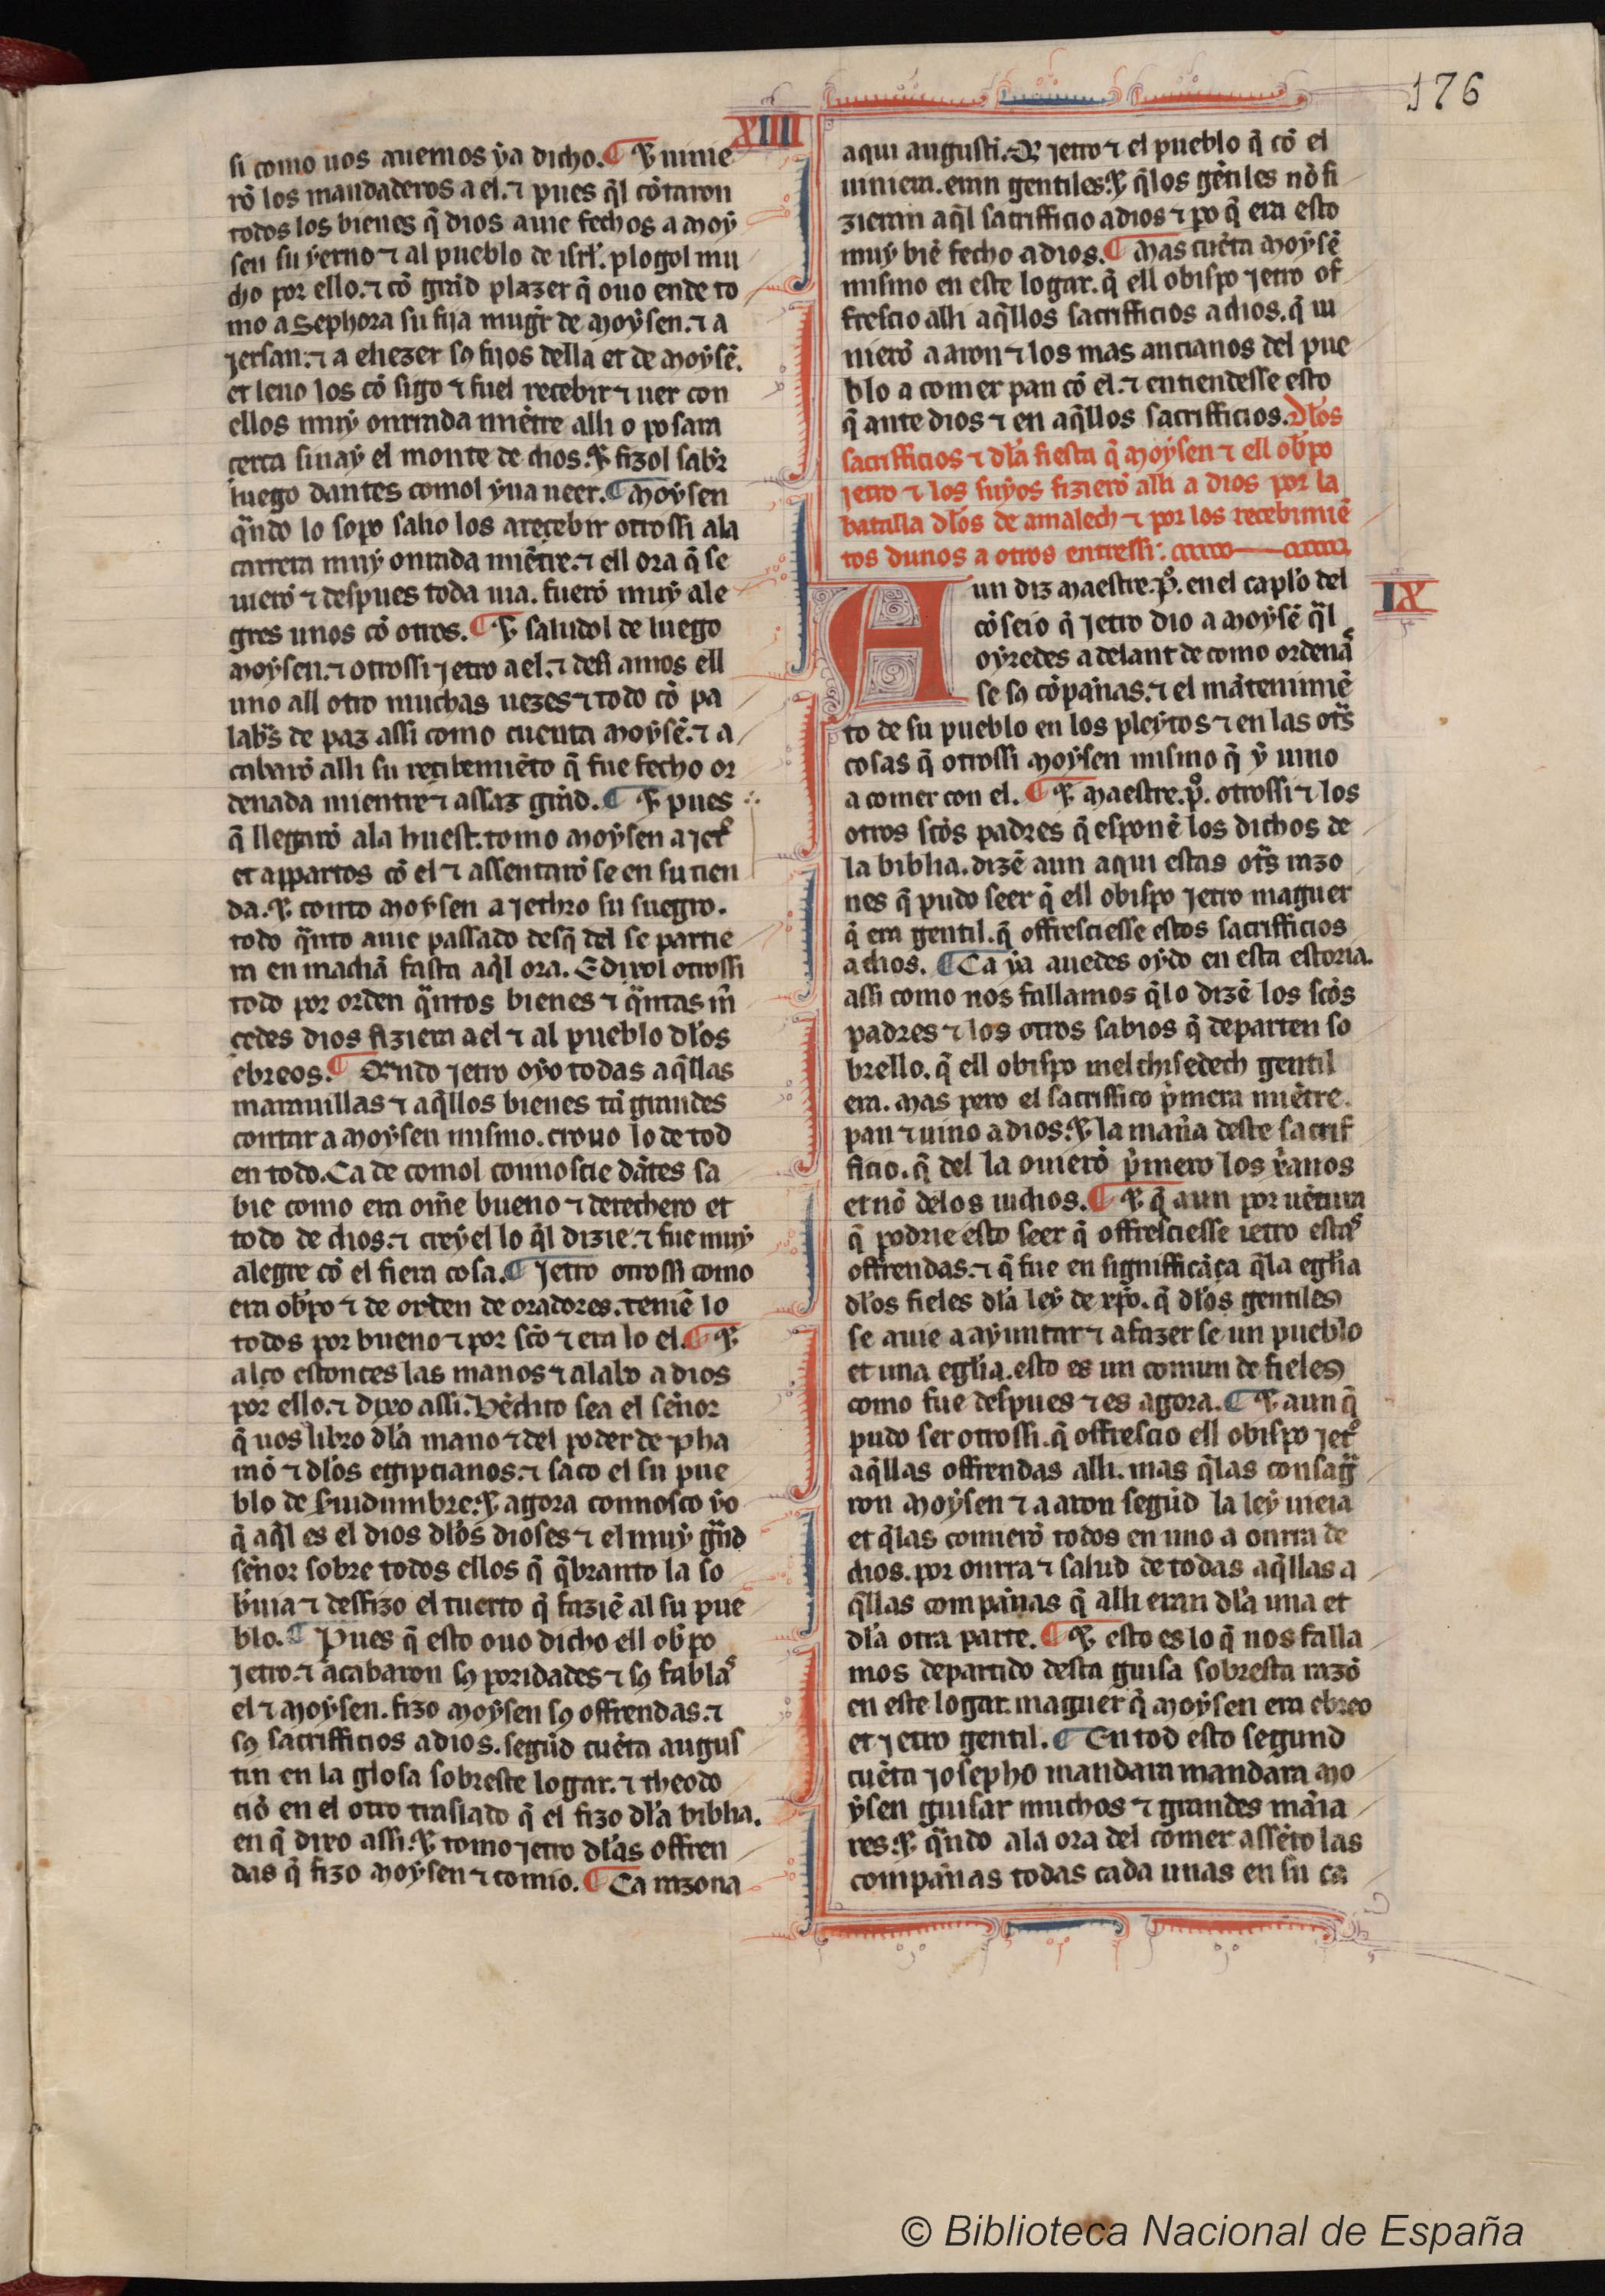 176
XIIII
si como uos auemos ya dicho. ¶ Et uinie
rõ los mandaderos a el. ⁊ pues q̃l cõtaron
todos los bienes q̃ dios auie fechos a moy
sen su yerno ⁊ al pueblo de isrl̃. plogol mu
cho por ello. ⁊ cõ grãd plazer q̃ ouo ende to
mo a Sephora su fija mugr̃ de moysen. ⁊ a
jersan. ⁊ a eliezer sos fijos della et de moysẽ.
et leuo los cõ sigo ⁊ fuel recebir ⁊ uer con
ellos muy onrrada miẽtre alli o posara
cerca sinay el monte de dios. Et fizol sabr̃
luego dantes comol yua ueer. ¶ Moysen
q̃ndo lo sopo salio los a reçebir otrossi ala
carrera muy onrada miẽtre. ⁊ ell ora q̃ se
uierõ ⁊ despues toda uia. fuerõ muy ale
gres unos cõ otros. ¶ Et saludol de luego
moysen. ⁊ otrossi jetro a el. ⁊ desi amos ell
uno all otro muchas uezes ⁊ todo cõ pa
labr̃s de paz assi como cuenta moysẽ. ⁊ a
cabarõ alli su recibemiẽto q̃ fue fecho or
denada mientre ⁊ assaz grãd. ¶ Et pues
q̃ llegarõ ala huest. tomo moysen a jetº
et appartos cõ el ⁊ assentarõ se en su tien
da. Et conto moysen a jethro su suegro.
todo q̃nto auie passado desq̃ del se partie
ra en machã fasta aq̃l ora. E dixol otrossi
todo por orden q̃ntos bienes ⁊ q̃ntas m̃
çedes dios fiziera a el ⁊ al pueblo dl̃os
ebreos. ¶ Quãdo jetro oyo todas aq̃llas
marauillas ⁊ aq̃llos bienes tã grandes
contar a moysen mismo. crouo lo de tod
en todo. Ca de comol connoscie dãtes sa
bie como era om̃e bueno ⁊ derechero et
todo de dios. ⁊ crey el lo q̃l dizie. ⁊ fue muy
alegre cõ el fiera cosa. ¶ Jetro otrossi como
era ob̃po ⁊ de orden de oradores. teniẽ lo
todos por bueno ⁊ por scõ ⁊ era lo el. ¶ Et
alço estonces las manos ⁊ alabo a dios
por ello. ⁊ dixo assi. Bẽdicto sea el señor
q̃ uos libro dl̃a mano ⁊ del poder de pha
raõ ⁊ dl̃os egiptianos. ⁊ saco el su pue
blo de s̃uidumbre. Et agora connosco yo
q̃ aq̃l es el dios dl̃os dioses ⁊ el muy grãd
señor sobre todos ellos q̃ q̃branto la so
b̃uia ⁊ desfizo el tuerto q̃ faziẽ al su pue
blo. ¶ Pues q̃ esto ouo dicho ell ob̃po
jetro. ⁊ acabaron sos poridades ⁊ sos fablas
el ⁊ moysen. fizo moysen sos offrendas. ⁊
sos sacrifficios a dios. segũd cuẽta augus
tin en la glosa sobreste logar. ⁊ theodo
ciõ en el otro traslado q̃ el fizo dl̃a biblia.
en q̃ dixo assi. Et tomo jetro dl̃as offren
das q̃ fizo moysen ⁊ comio. ¶ Ca razona
aqui augusti. Q̃ jetro ⁊ el pueblo q̃ cõ el
uiniera. eran gentiles. Et q̃los gẽtiles nõ fi
zieran aq̃l sacrifficio a dios ⁊ po q̃ era esto
muy biẽ fecho a dios. ¶ Mas cuẽta moysẽ
mismo en este logar. q̃ ell obispo jetro of
frescio alli aq̃llos sacrifficios a dios. q̃ ui
nierõ aaron ⁊ los mas ancianos del pue
blo a comer pan cõ el. ⁊ entiendesse esto
q̃ ante dios ⁊ en aq̃llos sacrifficios. Dl̃os
sacrifficios ⁊ dl̃a fiesta q̃ moysen ⁊ ell ob̃po
jetro ⁊ los suyos fizierõ alli a dios por la
batalla dl̃os de amalech ⁊ por los recebimiẽ
tos dunos a otros entressi.
IX
Aun diz maestre. pº. en el caplõ del
cõseio q̃ jetro dio a moysẽ q̃l
oyredes adelant de como ordenas
se sos cõpañas. ⁊ el mãtenimiẽ
to de su pueblo en los pleytos ⁊ en las otr̃s
cosas q̃ otrossi moysen mismo q̃ y uino
a comer con el. ¶ Et maestre. pº. otrossi ⁊ los
otros scõs padres q̃ esponẽ los dichos de
la biblia. dizẽ aun aqui estas otr̃s razo
nes q̃ pudo seer q̃ ell obispo jetro maguer
q̃ era gentil. q̃ offresciesse estos sacrifficios
a dios. ¶ Ca ya auedes oydo en esta estoria.
assi como nos fallamos q̃lo dizẽ los scõs
padres ⁊ los otros sabios q̃ departen so
brello. q̃ ell obispo melchisedech gentil
era. Mas pero el sacriffico p̃mera miẽtre.
pan ⁊ uino a dios. Et la mañã deste sacrif
ficio. q̃ del la ouierõ p̃mero los xãnos
et nõ delos iudios. ¶ Et q̃ aun por uẽtura
q̃ podrie esto seer q̃ offresciesse ietro estas
offrendas. ⁊ q̃ fue en signifficãça q̃la egl̃ia
dl̃os fieles dl̃a ley de xp̃o. q̃ dl̃os gentiles
se auie a ayuntar ⁊ a fazer se un pueblo
et una egl̃ia. esto es un comun de fieles
como fue despues ⁊ es agora. ¶ Et aun q̃
pudo ser otrossi. q̃ offrescio ell obispo jetº
aq̃llas offrendas alli. mas q̃las consag̃
ron moysen ⁊ aaron segũd la ley uieia
et q̃las comierõ todos en uno a onrra de
dios. por onrra ⁊ salud de todas aq̃llas a
q̃llas compañas q̃ alli eran dl̃a una et
dl̃a otra parte. ¶ Et esto es lo q̃ nos falla
mos departido desta guisa sobresta razõ
en este logar. maguer q̃ moysen era ebreo
et jetro gentil. ¶ En tod esto segund
cuẽta josepho mandara mandara mo
ysen guisar muchos ⁊ grandes mãia
res. Et q̃ndo ala ora del comer assẽto las
compañas todas cada unas en su ca
© Biblioteca Nacional de España